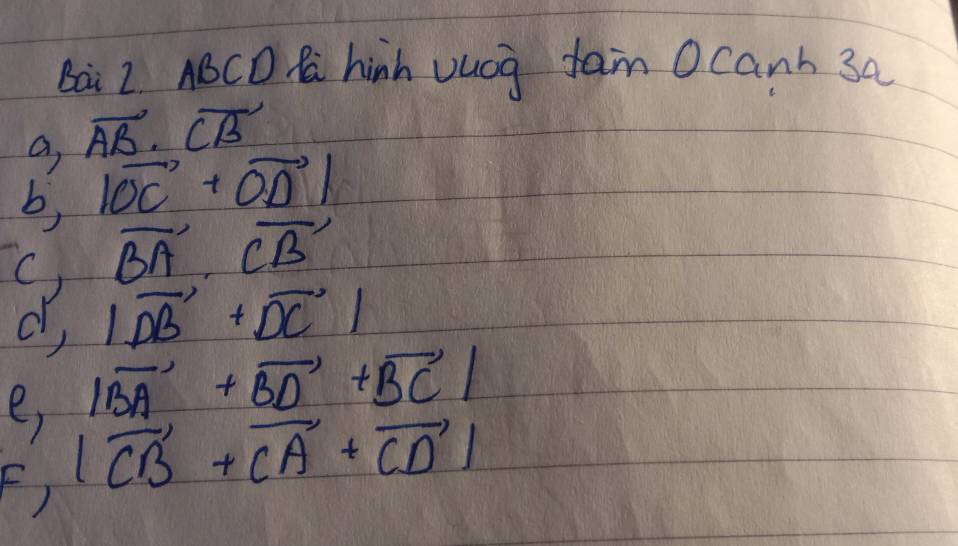 Bài 2. ABCD là hình vuôg tâm O cạnh 3a
a, $\overrightarrow{AB}$ . $\overrightarrow{CB}$
b, |$\overrightarrow{OC}$ + $\overrightarrow{OD}$|
c, $\overrightarrow{BA}$ . $\overrightarrow{CB}$
d, |$\overrightarrow{DB}$ + $\overrightarrow{DC}$|
e, |$\overrightarrow{BA}$ + $\overrightarrow{BD}$ + $\overrightarrow{BC}$|
F, |$\overrightarrow{CB}$ + $\overrightarrow{CA}$ + $\overrightarrow{CD}$|